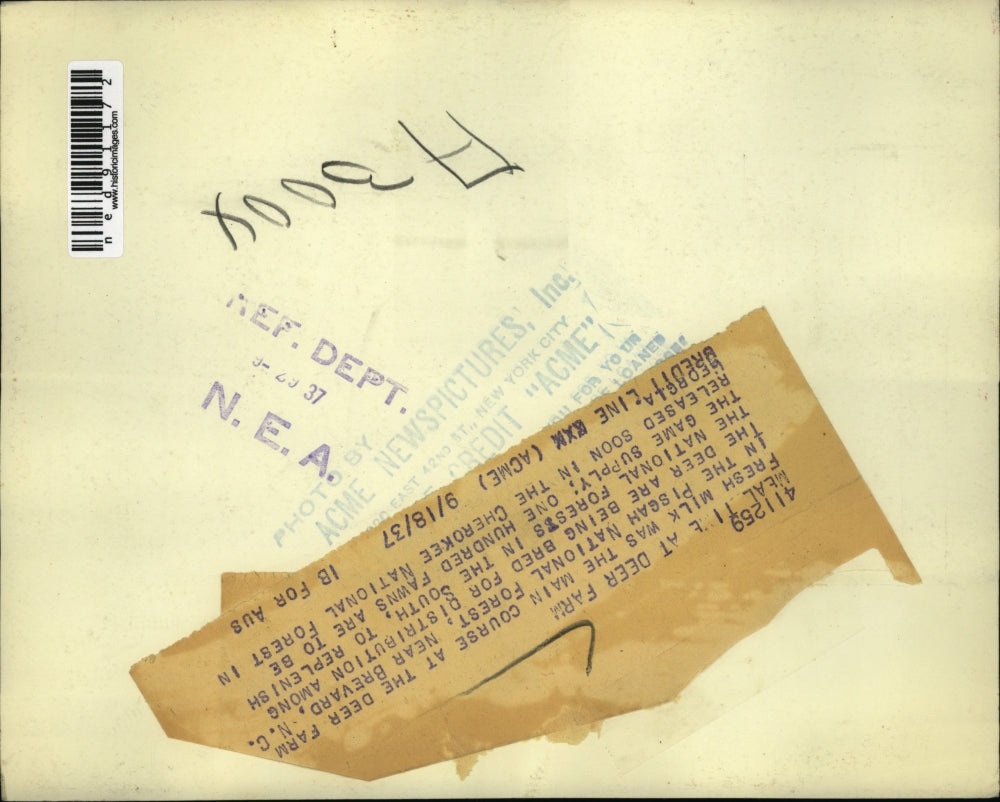 n e d 9 1 1 7 2
www.historicimages.com
REF. DEPT.
9-29 37
N. E. A.
PHOTO BY
ACME NEWSPICTURES, Inc.
EAST 42ND ST., NEW YORK CITY
CREDIT "ACME"
FOR YOUR
LOANED
411259
MEAL AT DEER FARM
FRESH MILK WAS THE MAIN COURSE AT THE DEER FARM
IN THE PISGAH NATIONAL FOREST, NEAR BREVARD, N.C.
THE DEER ARE BEING BRED FOR DISTRIBUTION AMONG
THE NATIONAL FORESTS IN THE SOUTH, TO REPLENISH
THE GAME SUPPLY; ONE HUNDRED FAWNS ARE TO BE
RELEASED SOON IN THE CHEROKEE NATIONAL FOREST IN
GEORGIA.
CREDIT LINE (ACME) 9/18/37 IB FOR AUS